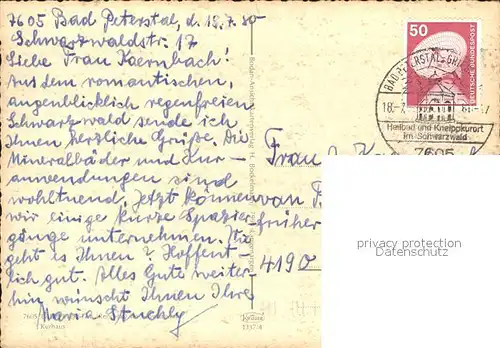 7605 Bad Peterstal, d. 18.7.80
Schwarzwaldstr. 17
Liebe Frau Kaernbach!
Aus dem romantischen,
augenblicklich regenfreien
Schwarzwald sende ich
Ihnen herzliche Grüße. Die
Mineralbäder und Kur-
anwendungen sind
wohltuend. Jetzt können
wir einige kurze Spazier
gänge unternehmen. Wie
geht es Ihnen? Hoffent
lich gut. Alles Gute weiter-
hin wünscht Ihnen Ihre
Maria Stuchly
7605
Kurhaus
Krüger
50
DEUTSCHE BUNDESPOST
BAD PETERSTAL-GRIE
18.-7.
Heilbad und Kneippkurort
im Schwarzwald
7605
Frau
van
früher
4190
privacy protection
Datenschutz